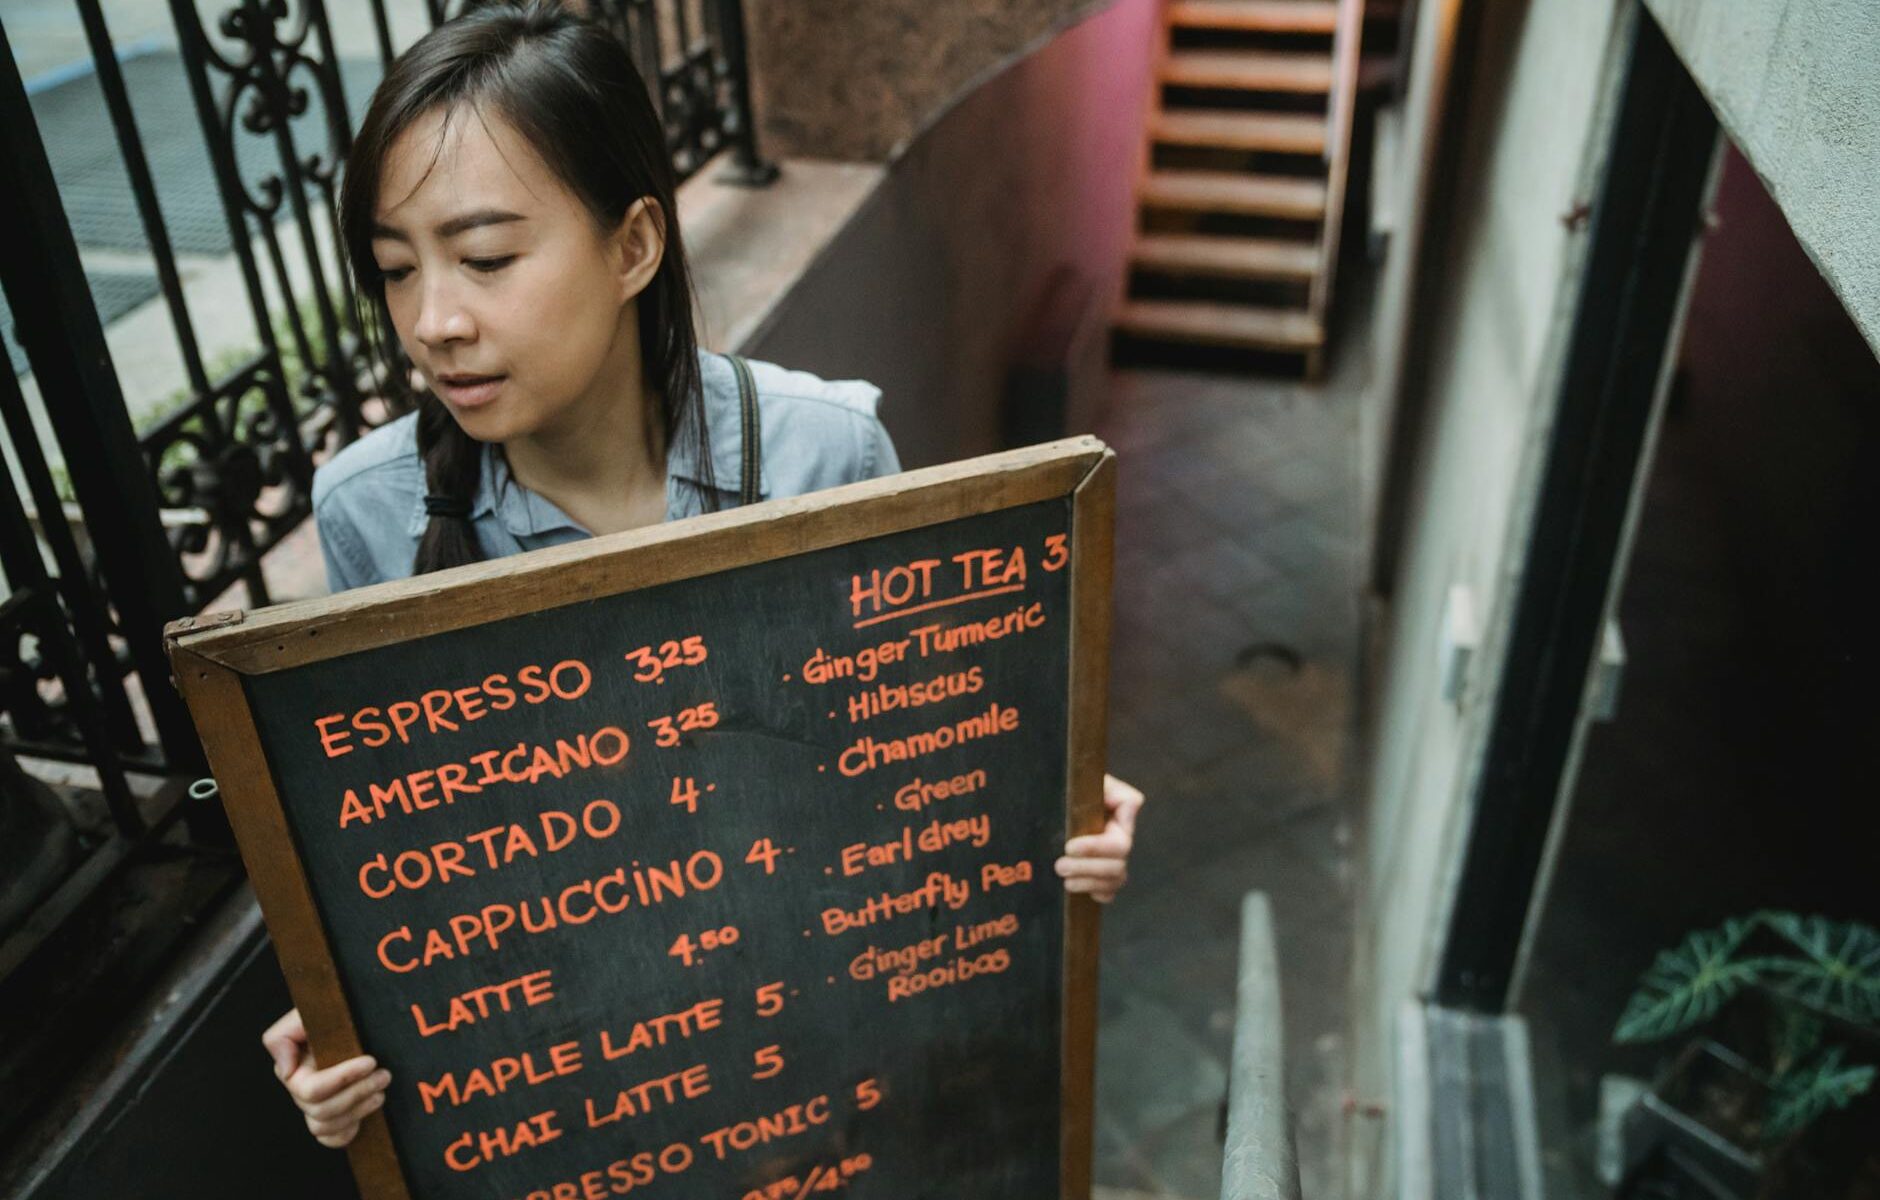 ESPRESSO 3.25
AMERICANO 3.25
CORTADO 4.
CAPPUCCINO 4.
LATTE 4.50
MAPLE LATTE 5.
CHAI LATTE 5
TONIC 5
HOT TEA 3
. Ginger Turmeric
. Hibiscus
. Chamomile
. Green
. Earl Grey
. Butterfly Pea
. Ginger Lime
Rooibos